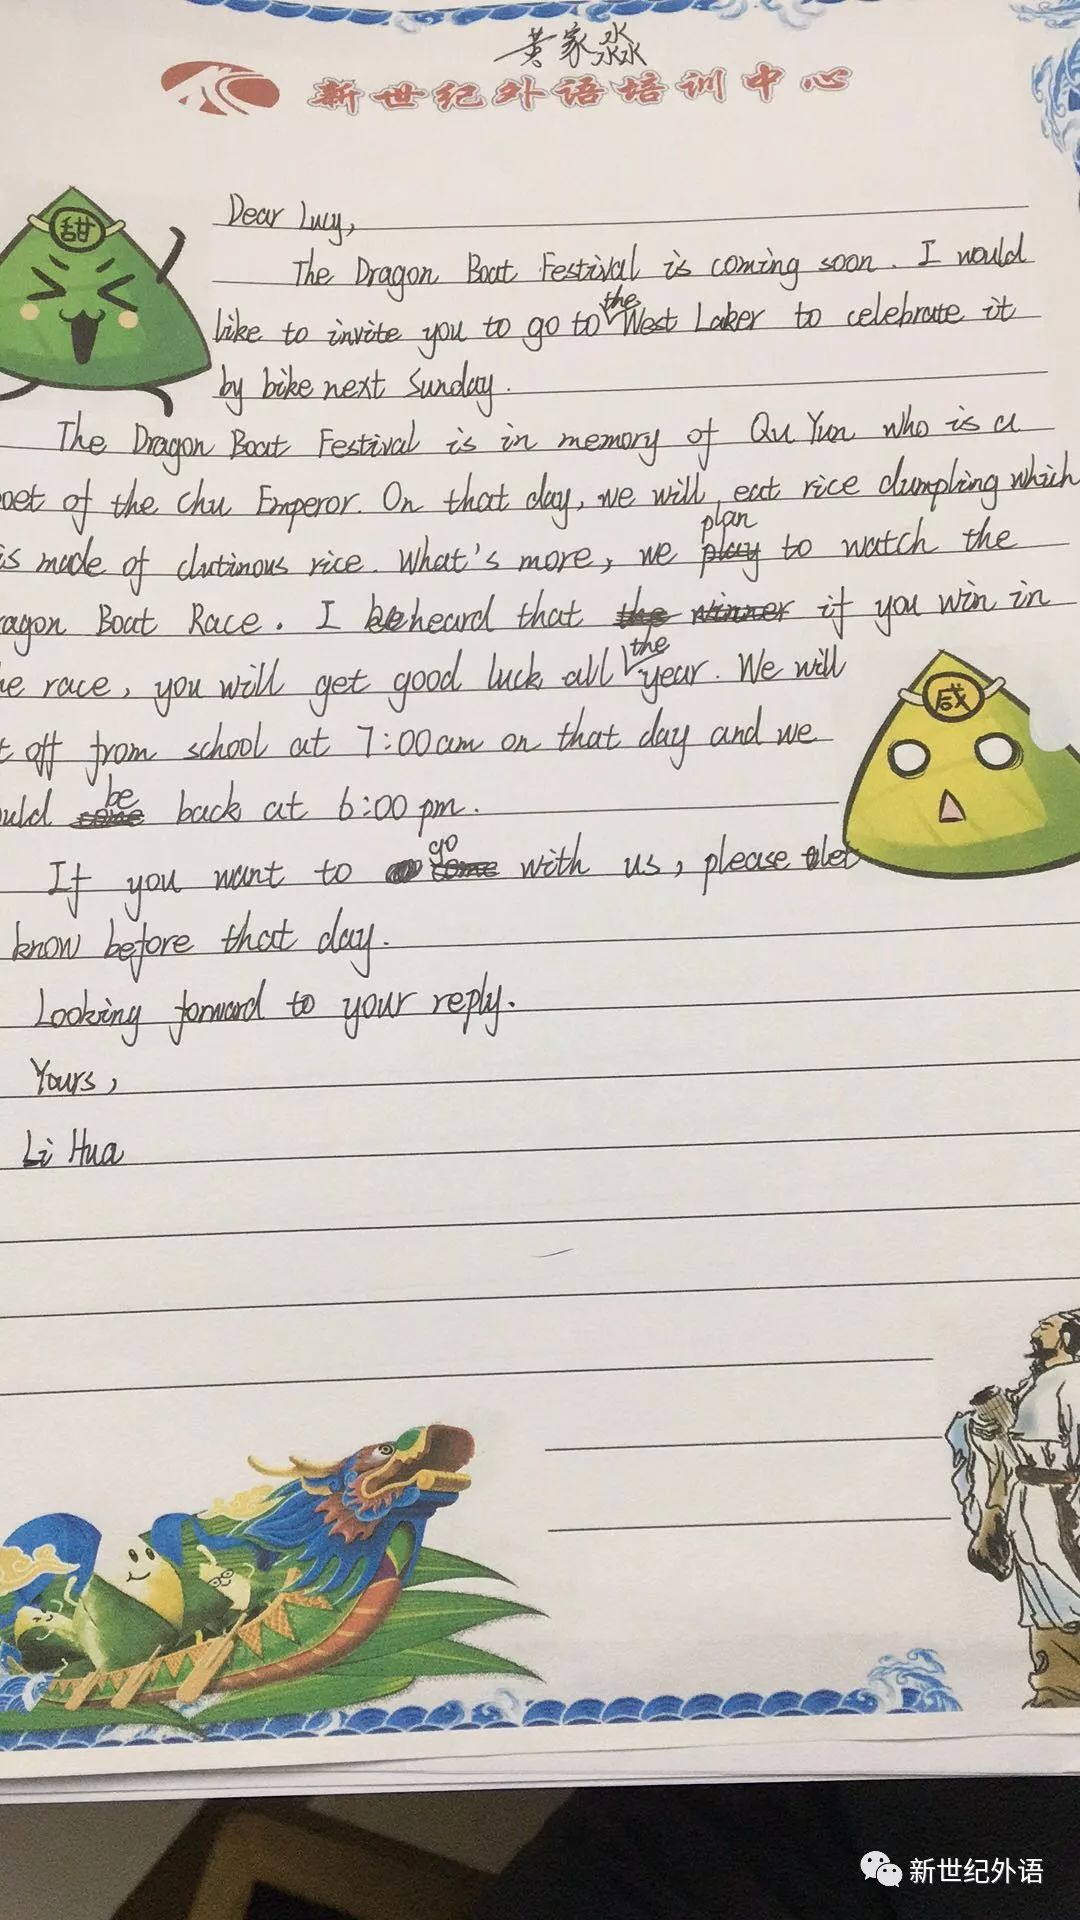 黄家淼
新世纪外语培训中心
甜
Dear Lucy,
The Dragon Boat Festival is coming soon. I would
like to invite you to go to the West Laker to celebrate it
by bike next Sunday.
The Dragon Boat Festival is in memory of Qu Yun who is a
oet of the Chu Emperor. On that day, we will eat rice dumpling which
is made of clutinous rice. What's more, we plan to watch the
ragon Boat Race. I heard that if you win in
e race, you will get good luck all the year. We will
t off from school at 7:00am on that day and we
uld be back at 6:00 pm.
咸
If you want to go with us, please let
know before that day.
Looking forward to your reply.
Yours,
Li Hua
新世纪外语